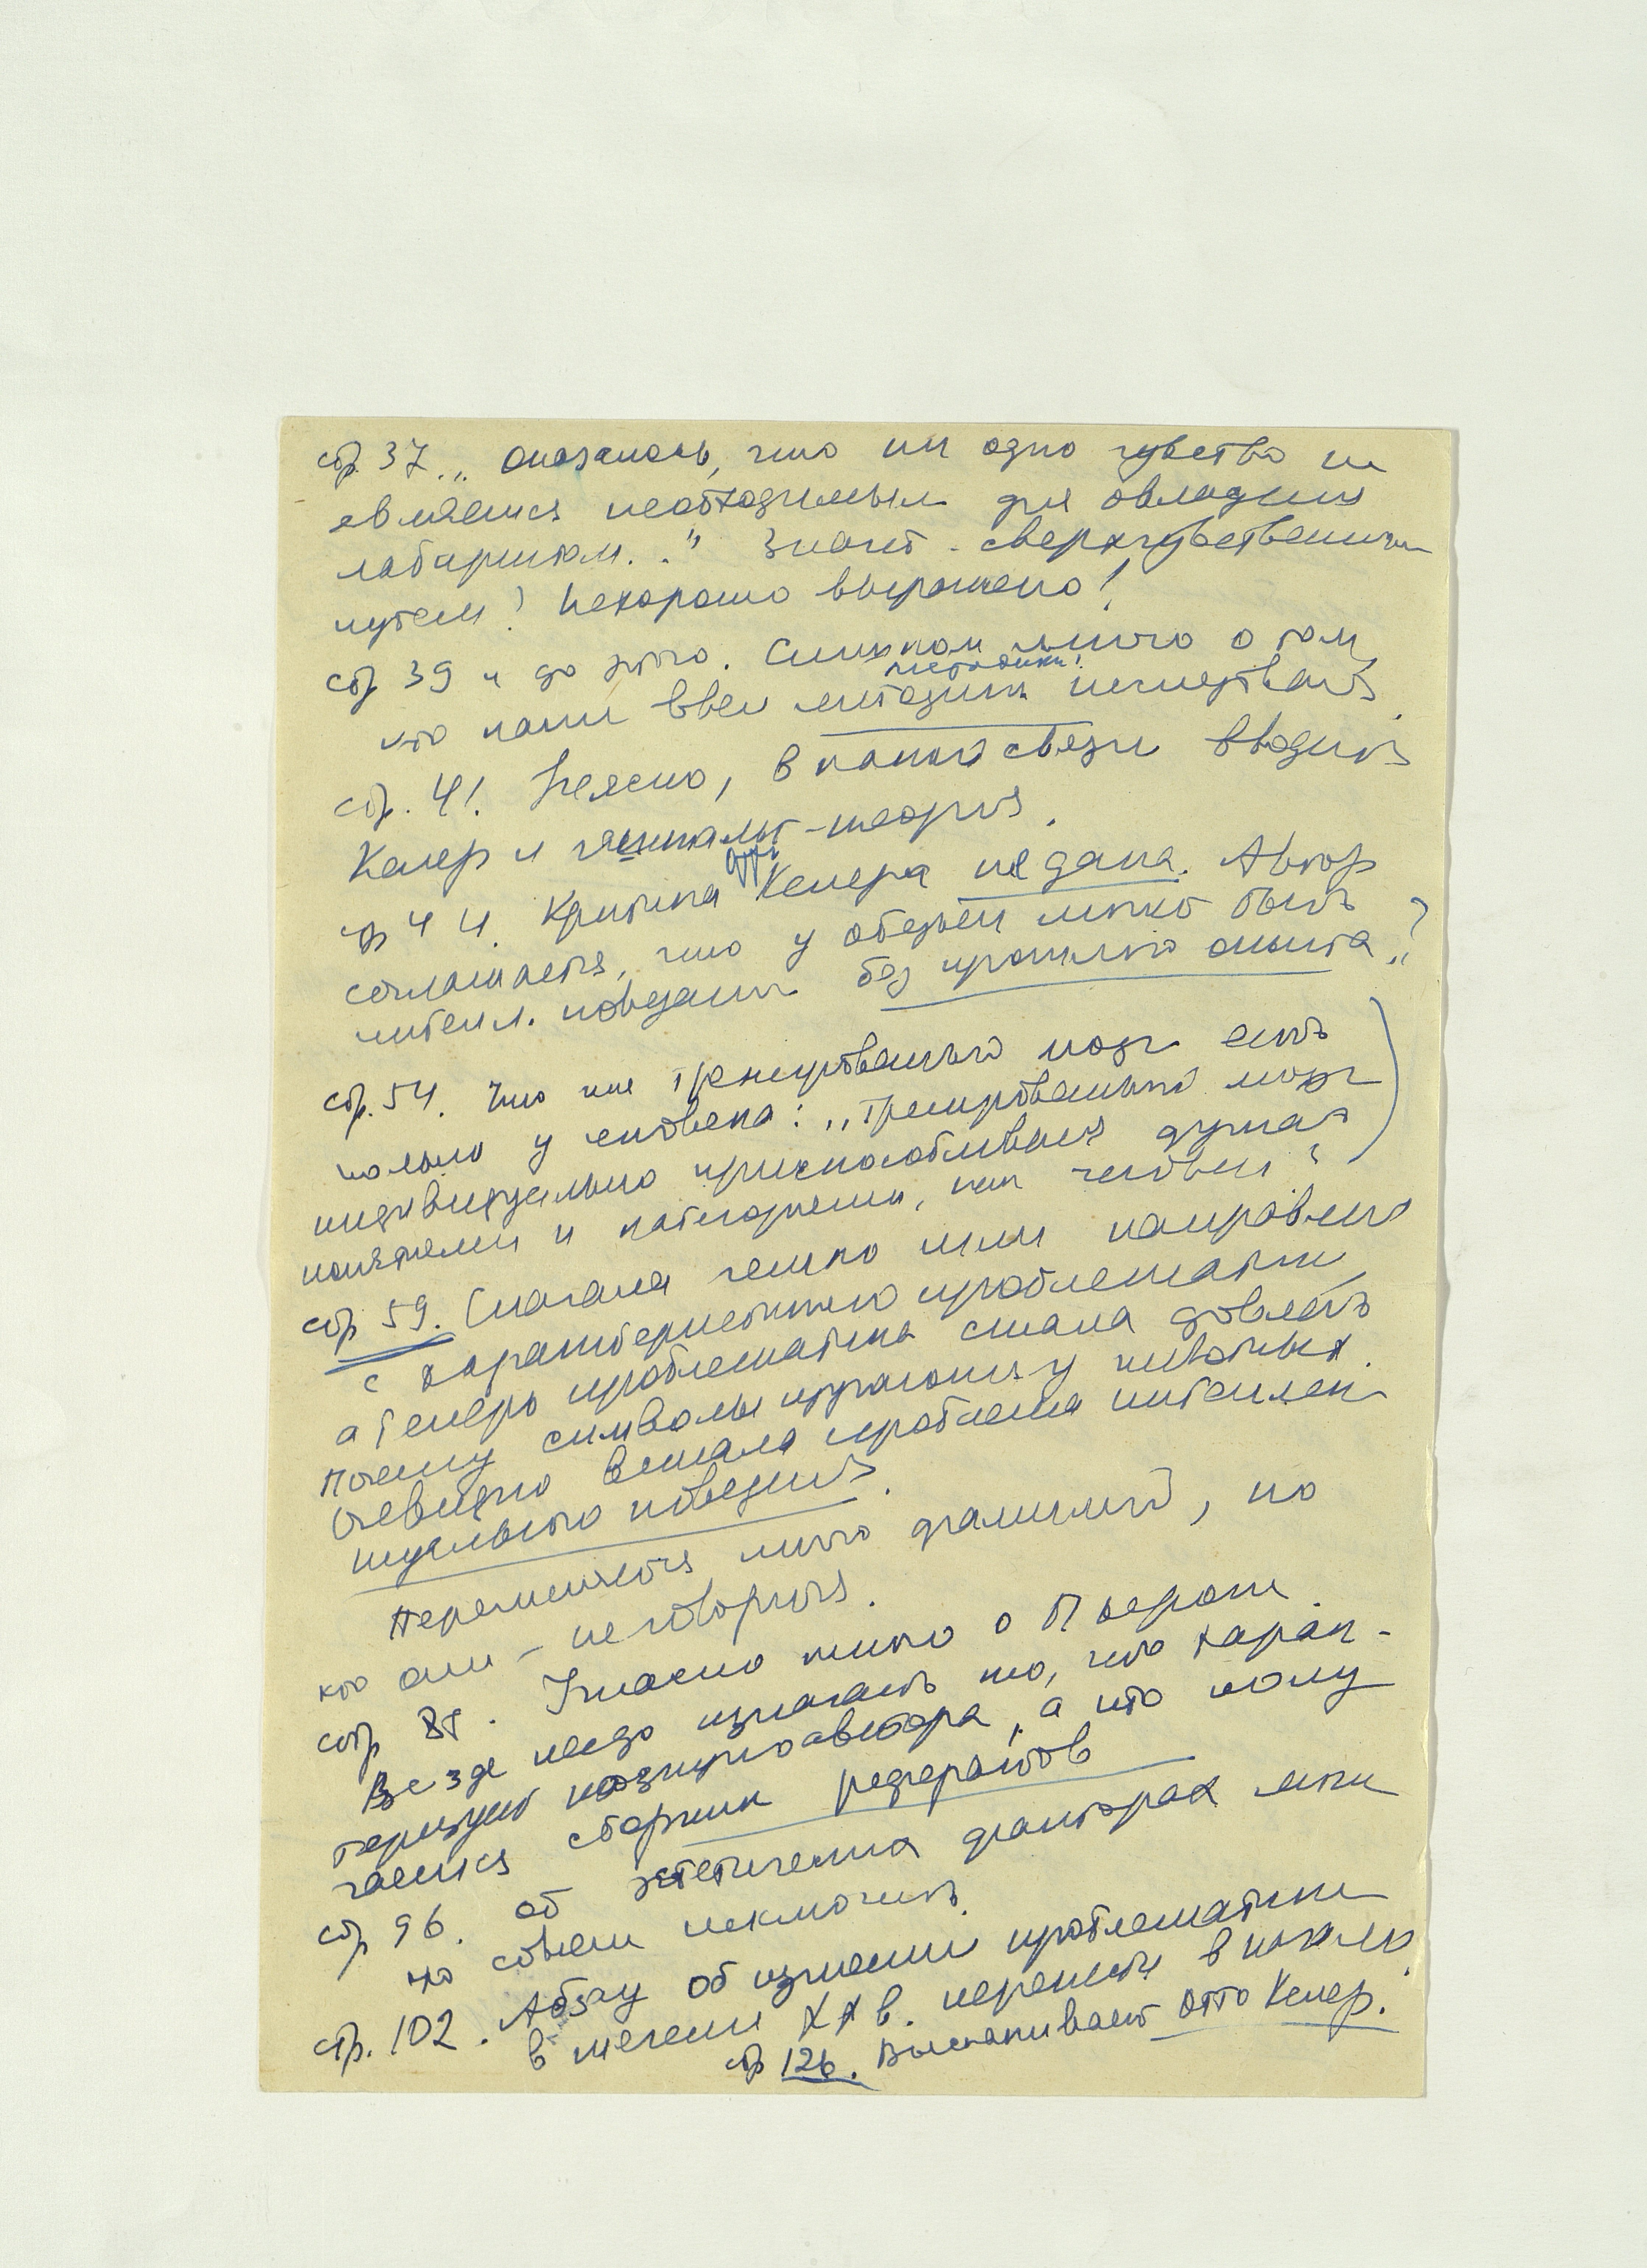 стр. 37. „Оказалось, что ни одно чувство не
является необходимым для овладения
лабиринтом..." Значит - сверхчувственным
путем? Нехорошо выражено!
стр 39 и до этого. Слишком много о том,
методики
кто какие ввел методики исследования.
стр. 41. Неясно, в какой связи вводится
Келер и гештальт-теория.
стр 44. Критика Келера не дана. Автор
соглашается, что у обезьян может быть
интелл. поведение без прошлого опыта"?
стр. 54. Что же тренированный мозг есть
только у человека: „Тренированный мозг
индивидуально приспосабливаться думая
понятиями и категориями, как человек"?
стр 59. Сначала четко или направлено
с характеристикою проблематики,
а теперь проблематика стала довлеть
Почему символы изучаются у животных.
Очевидно встала проблема интеллек-
туального поведения.
Перечисляется много фамилий, но
кто они - не говорится.
стр 85. Ужасно много о Пьероне
Везде надо излагать то, что харак-
теризует позицию автора, а то полу
чается сборник рефератов
стр 96. Об эстетических факторах мож
но совсем исключить.
стр. 102. Абзац об изучении проблематики
в течении XX в. перенести в начало.
стр 126. Выскакивает Отто Келер.